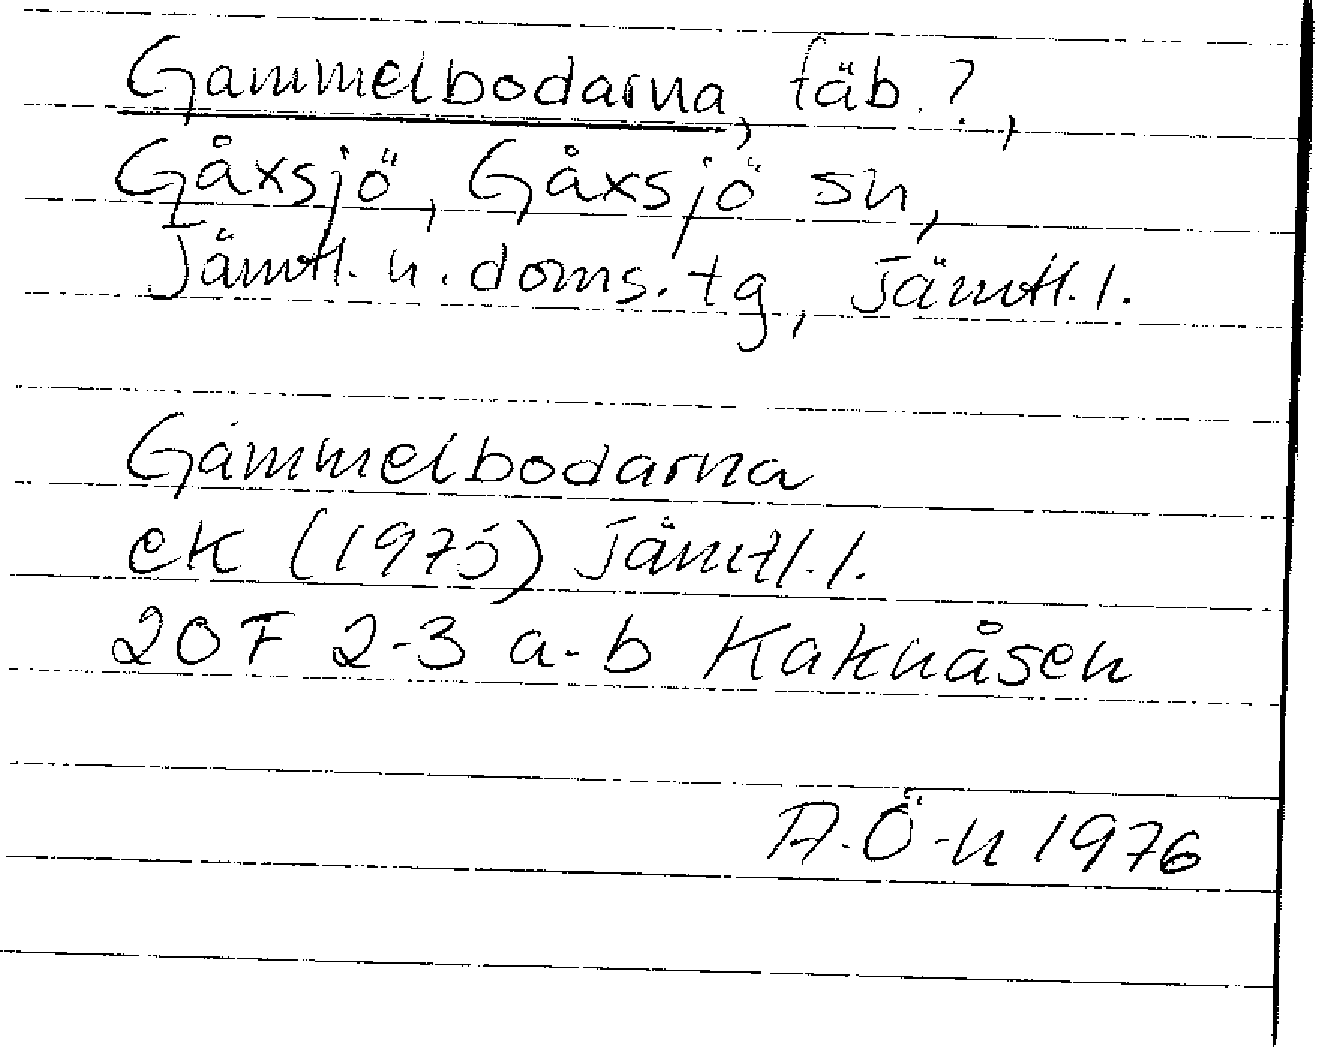 Gammelbodarna, fäb.?,
Gåxsjö, Gåxsjö sn,
Jämtl. n. doms. tg, Jämtl. l.
Gammelbodarna
ek (1975) Jämtl. l.
20F 2-3 a-b Kaknåsen
A.Ö-n 1976